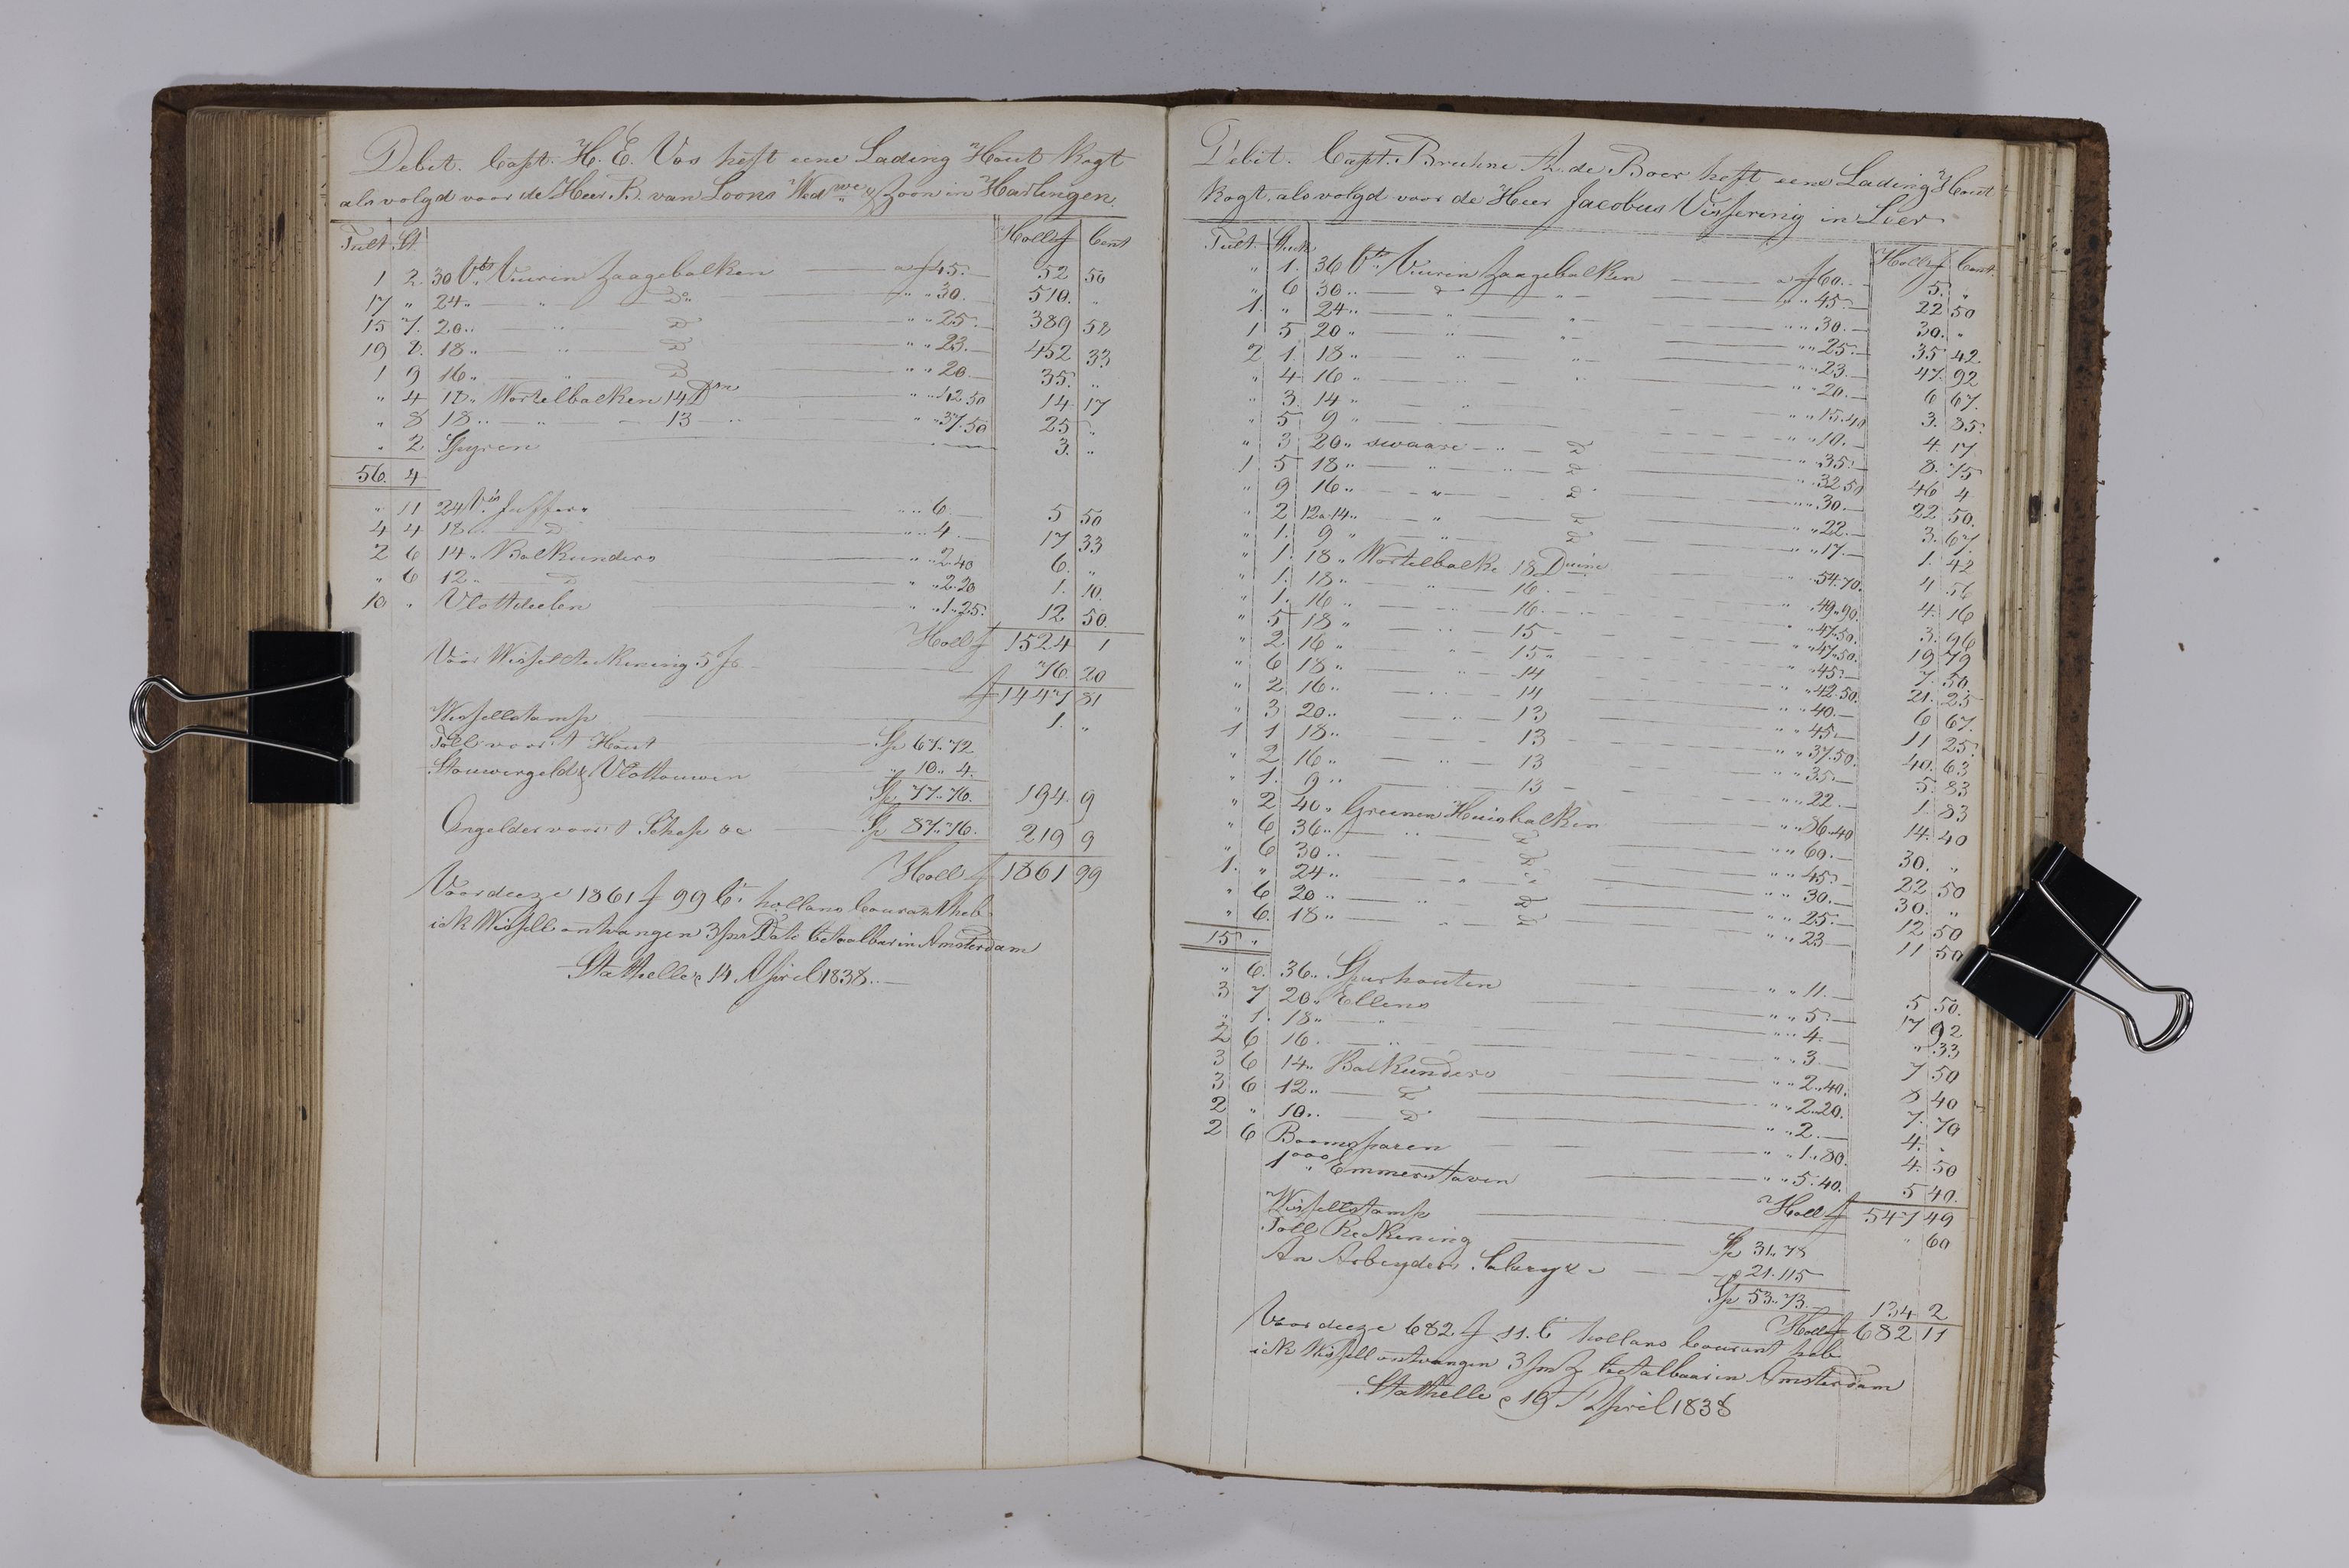 Debit. Capt. H. E. Vos heft eene Lading Hout Kogt
als volgd voor de Heer B. van Loons Wed we & Zoon in Harlingen.
Tult. St. Holl f Cent
1 2. 30 Vts Vuurin Zaagebalken a f 45. 52 50
17 " 24 " " Do " " 30. 510. "
15 7. 20 " " D " " 25. 389 58
19 8. 18 " " D " " 23. 452 33
1 9 16 " " D " " 20 35. "
" 4 18 " Wortelbalken 14 Dm " " 42 50 14 17
" 8 18 " " 13 " " " 37.50 25 "
" 2 Spyren 3. "
56. 4
" 11 24 Vts Juffers " " 6. 5 50
4 4 18 " D " " 4. 17 33
2 6 14 " Balkunders " " 2.40 6. "
" 6 12 " D " " 2.20 1. 10.
10 " Vlottdeelen " " 1.25. 12 50.
Holl f 1524 1
Voor Wissel Rekening 5 76. 20
f 1447 81
Wissellstamp 1. "
Toll voor t Hout Sp 67. 72
Stouwergeld & Vlottouwen " 10. 4.
Sp. 77. 76. 194. 9
Ongelder voor t Schep &c Sp 87. 76. 219 9
Holl f 1861 99
Voor deeze 1861 f 99 Ct hollans Courant heb
ick Wissell ontvangen 3 pr Dato betaalbar in Amsterdam
Stathelle 14 April 1838.
Debit. Capt. Bruhne Az. de Boer heft eene Lading Hout
Kogt als volgd voor de Heer Jacobus Vissering in Leer
Tult. Stuck Holl f Cent.
" 1. 36 Vts Vuurin Zaagebalken a f 60. 5. "
" 6 30 " " " " 45. 22 50
1. " 24 " " " " 30. 30. "
1 5 20 " " " " 25. 35 42
2 1. 18 " " " " 23. 47. 92
" 4 16 " " " " 20. 6 67.
" 3. 14 " " " 15.40 3. 85.
" 5 9 " " " 10. 4. 17
" 3 20 " swaare " D " " 35. 8. 75
1 5 18 " " D " " 32 50 46 4
" 9 16 " " D " " 30. 22 50.
" 2 12 a 14 " " D " " 22. 3. 67.
" 1. 9 " " D " " 17. 1. 42
" 1. 18 " Wortelbalke 18 Duim " 54.70. 4 56
" 1. 18 " " 16. " 49.90. 4. 16
" 1. 16 " 16. " 47.50. 3. 96
" 5 18 " " 15 " 47.50. 19 79
" 2. 16 " " 15 " " 45. 7. 50
" 6 18 " " 14 " 42.50. 21. 25
" 2 16 " " 14 " " 40. 6 67.
" 3 20 " " 13 " " 45. 11 25.
1 1 18 " 13 " " 37.50. 40. 63
" 2 16 " " 13 " " 35. 5. 83
" 1. 9 " 13 " " 22. 1. 83
" 2 40 " Greinen Huisbalken " " 86.40 14. 40
" 6 36 " " D " " 60. 30. "
" 6 30 " D " " 45. 22 50
1. " 24 " " " " " 30. 30. "
" 6 20 " " D " " 25. 12 50
" 6. 18 " " D " " 23 11 50
15 "
" 6. 36 " Spurhouten " " 11. 5 50.
3 7 20 " Ellens " " 5. 17 92.
" 1. 18 " " " " 4. " 33
2 6 16. " " " 3. 7 50
3 6 14 " Balkunders " " 2.40. 8 40
3 6 12 " D " " 2.20. 7. 70
2 " 10 " D " " 2. 4. "
2 6 Boomsparen " " 1.80. 4. 50
1000 Emmerstaven " " 5.40. 5 40.
Holl f 547 49
Wissellstamp " 60
Toll Rekening Sp 31. 78
An Arbeyders Salary & " 21. 115
Sp 53. 73. 134 2
Holl f 682 11
Voor deeze 682 f 11. Ct hollans Courant heb
ick Wissell ontvangen 3 betalbaar in Amsterdam
Stathelle 19 April 1838